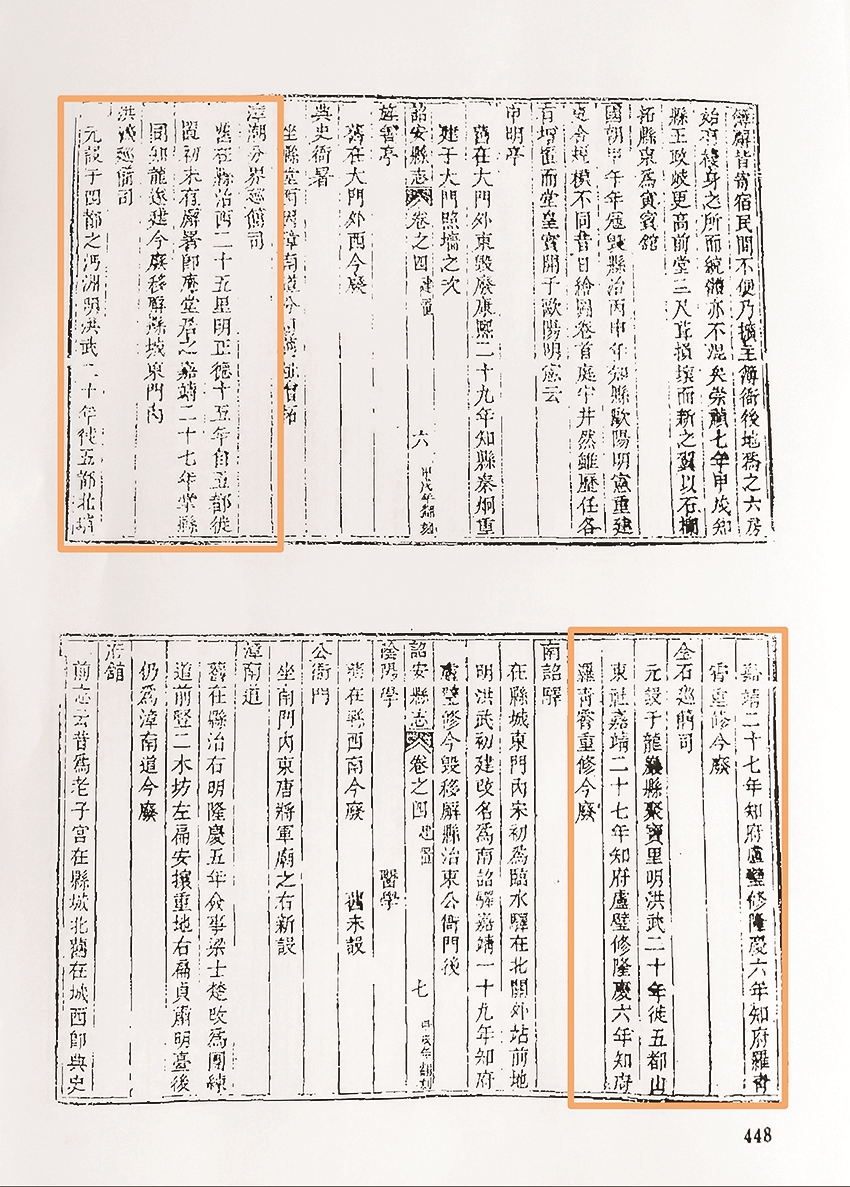 簿廨皆寄宿民間不便乃擴主簿衙後地為之六房
始有棲身之所而統體亦不混矣崇禎七年甲戌知
縣王政岐更高前堂三尺葺損壞而新之翼以石欄
拓縣東為賓賓館
國朝甲午年寇毀縣治丙申年知縣歐陽明憲重建
克合規模不同昔日繪圖卷首庭宇井然雖歷任各
有增置而堂皇實開于歐陽明憲云
申明亭
舊在大門外東毀廢康熙二十九年知縣秦炯重
建于大門照墻之次
詔安縣志 卷之四 建置 六 甲戌年翻刻
旌善亭
舊在大門外西今廢
典史衙署
坐縣堂西
漳潮分界巡檢司
舊在縣治西二十五里明正德十五年自五都徙
置初未有廨署即庵堂居之嘉靖二十七年掌縣
同知龍遂建今廢移廨縣城東門內
洪淡巡檢司
元設于四都之沔洲明洪武二十年徙五都北埔
嘉靖二十七年知府盧璧修隆慶六年知府羅青
霄重修今廢
金石巡檢司
元設于龍巖縣聚賓里明洪武二十年徙五都山
東社嘉靖二十七年知府盧璧修隆慶六年知府
羅青霄重修今廢
南詔驛
在縣城東門內宋初為臨水驛在北關外站前地
明洪武初建改名為南詔驛嘉靖一十九年知府
盧璧修今毀移廨縣治東公衙門後
詔安縣志 卷之四 建置 七 甲戌年翻刻
陰陽學 醫學
舊在縣西南今廢 舊未設
公衙門
坐南門內東唐將軍廟之右新設
漳南道
舊在縣治右明隆慶五年僉事梁士楚改為團練
道前豎二木坊左扁安攘重地右扁貞肅明臺後
仍為漳南道今廢
府館
前志云昔為老子宮在縣城北舊在城西即典史
448